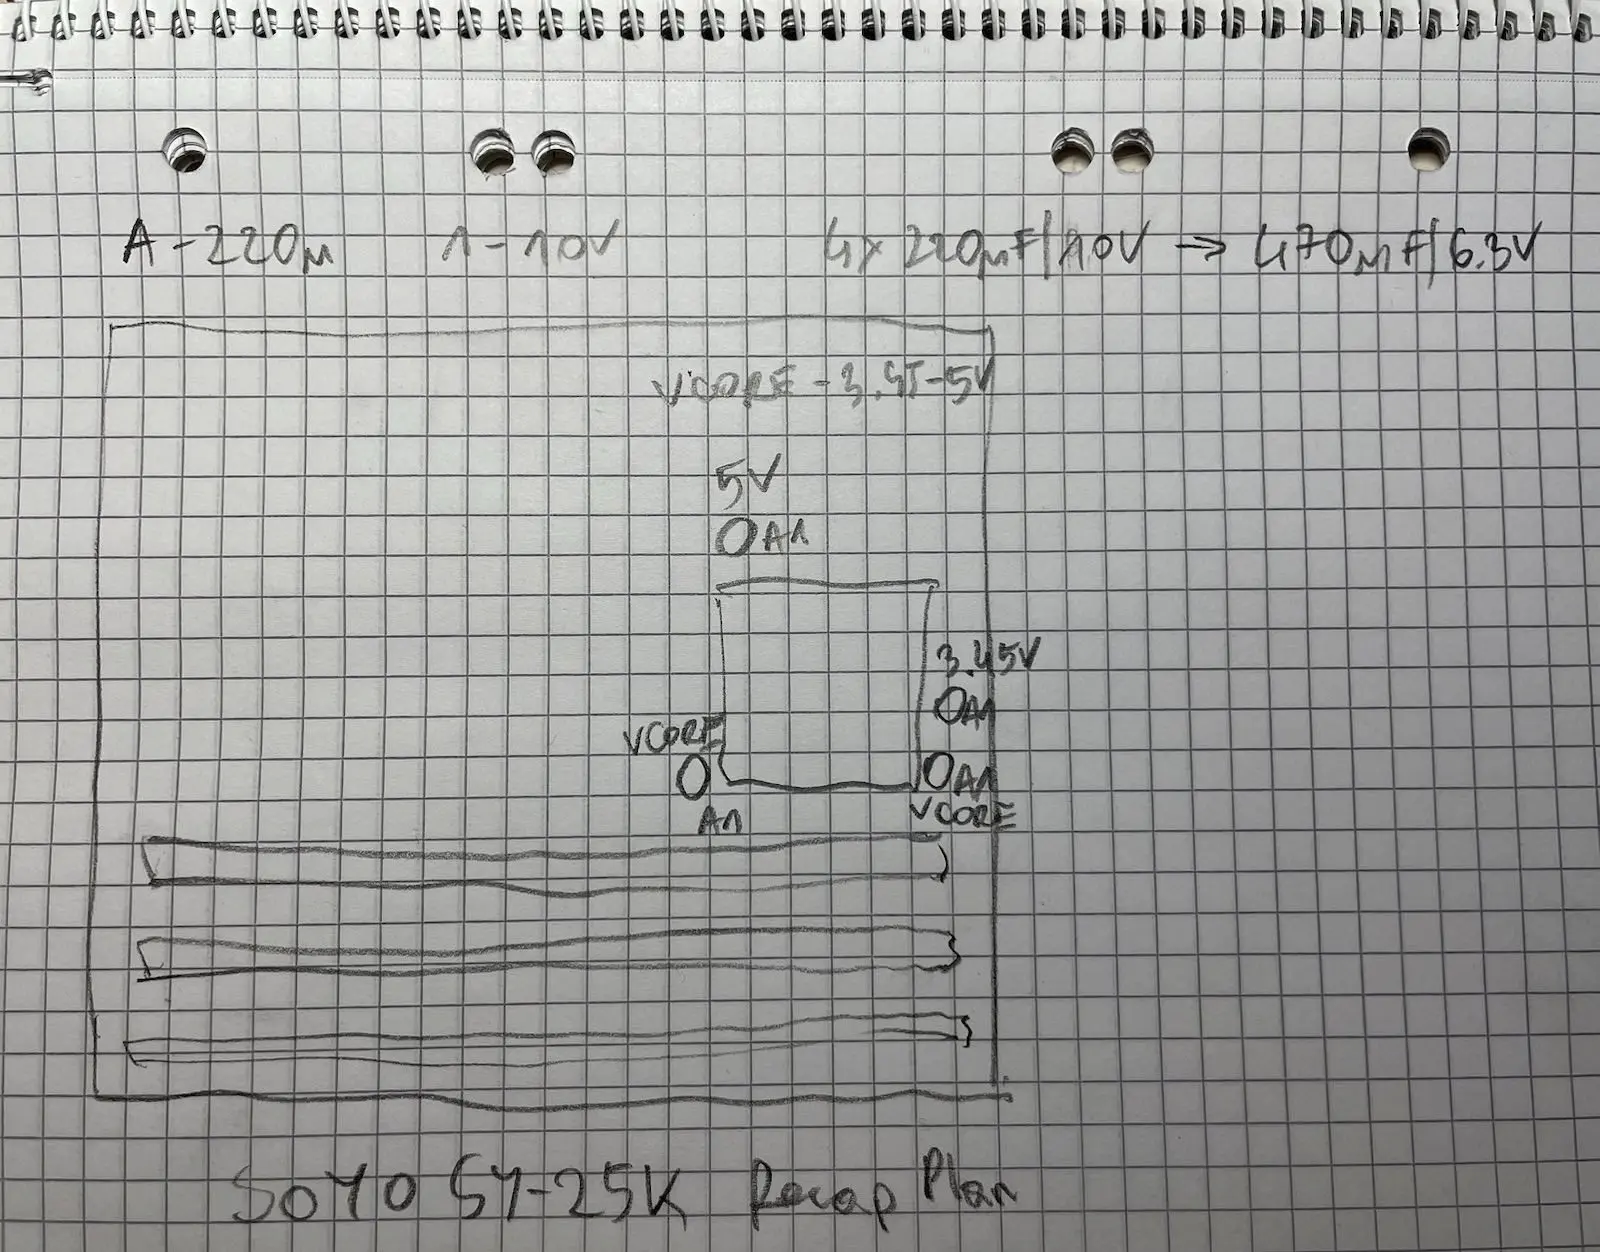 A-220µ 1-10V 4x 220µF/10V → 470µF/6.3V
VCORE-3.45-5V
5V
A1
3.45V
A1
VCORE
A1
A1
VCORE
SOYO SY-25K Recap Plan